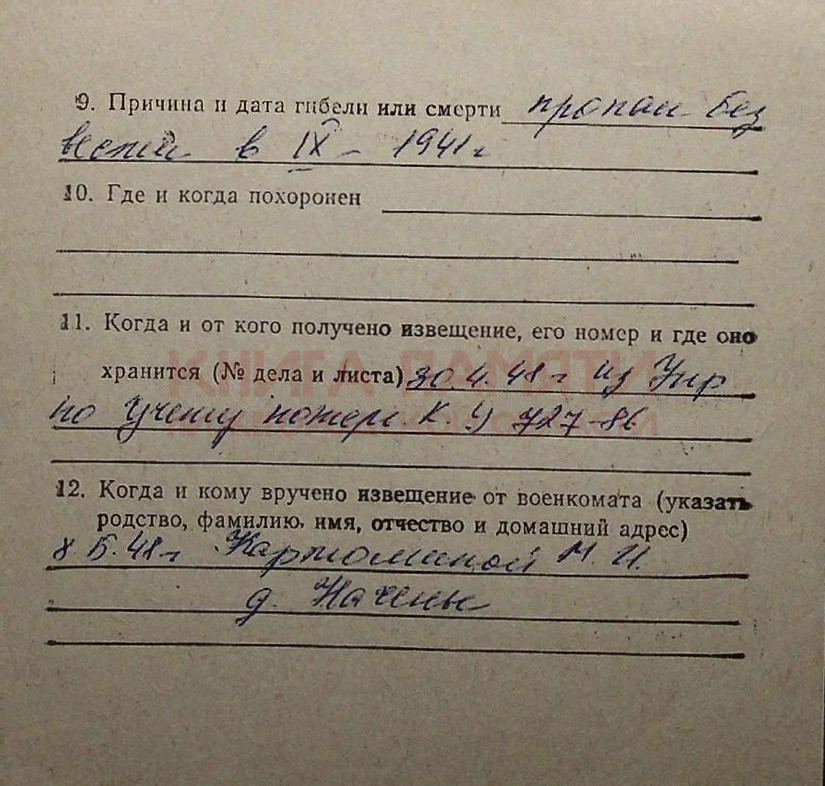 9. Причина и дата гибели или смерти пропал без
вести в IX - 1941 г
10. Где и когда похоронен
11. Когда и от кого получено извещение, его номер и где оно
КНИГА ПАМЯТИ
хранится (№ дела и листа) 30.4.48 г из Упр
по учету потерь К. У 727-86
12. Когда и кому вручено извещение от военкомата (указать
родство, фамилию, имя, отчество и домашний адрес)
8 5.48 г М. И.
д.